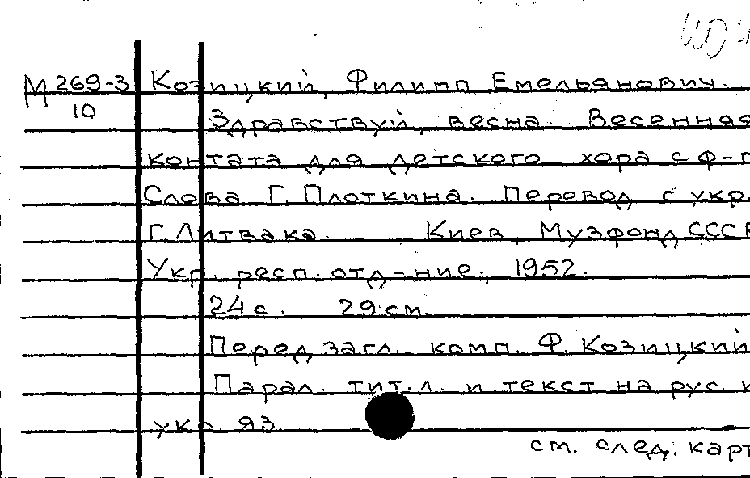 М 269-3 Козицкий, Филипп Емельянович.
10
Здравствуй, весна. Весенняя
контата для детского хора с ф-п
Слова Г. Плоткина. Перевод с укр.
Г. Литвака. Киев, Музфонд СССР
Укр. респ. отд-ние, 1952.
24 с. 29 см.
Перед загл. комп. Ф. Козицкий
Парал. тит. л. и текст на рус. и
укр. яз.
см. след. карт